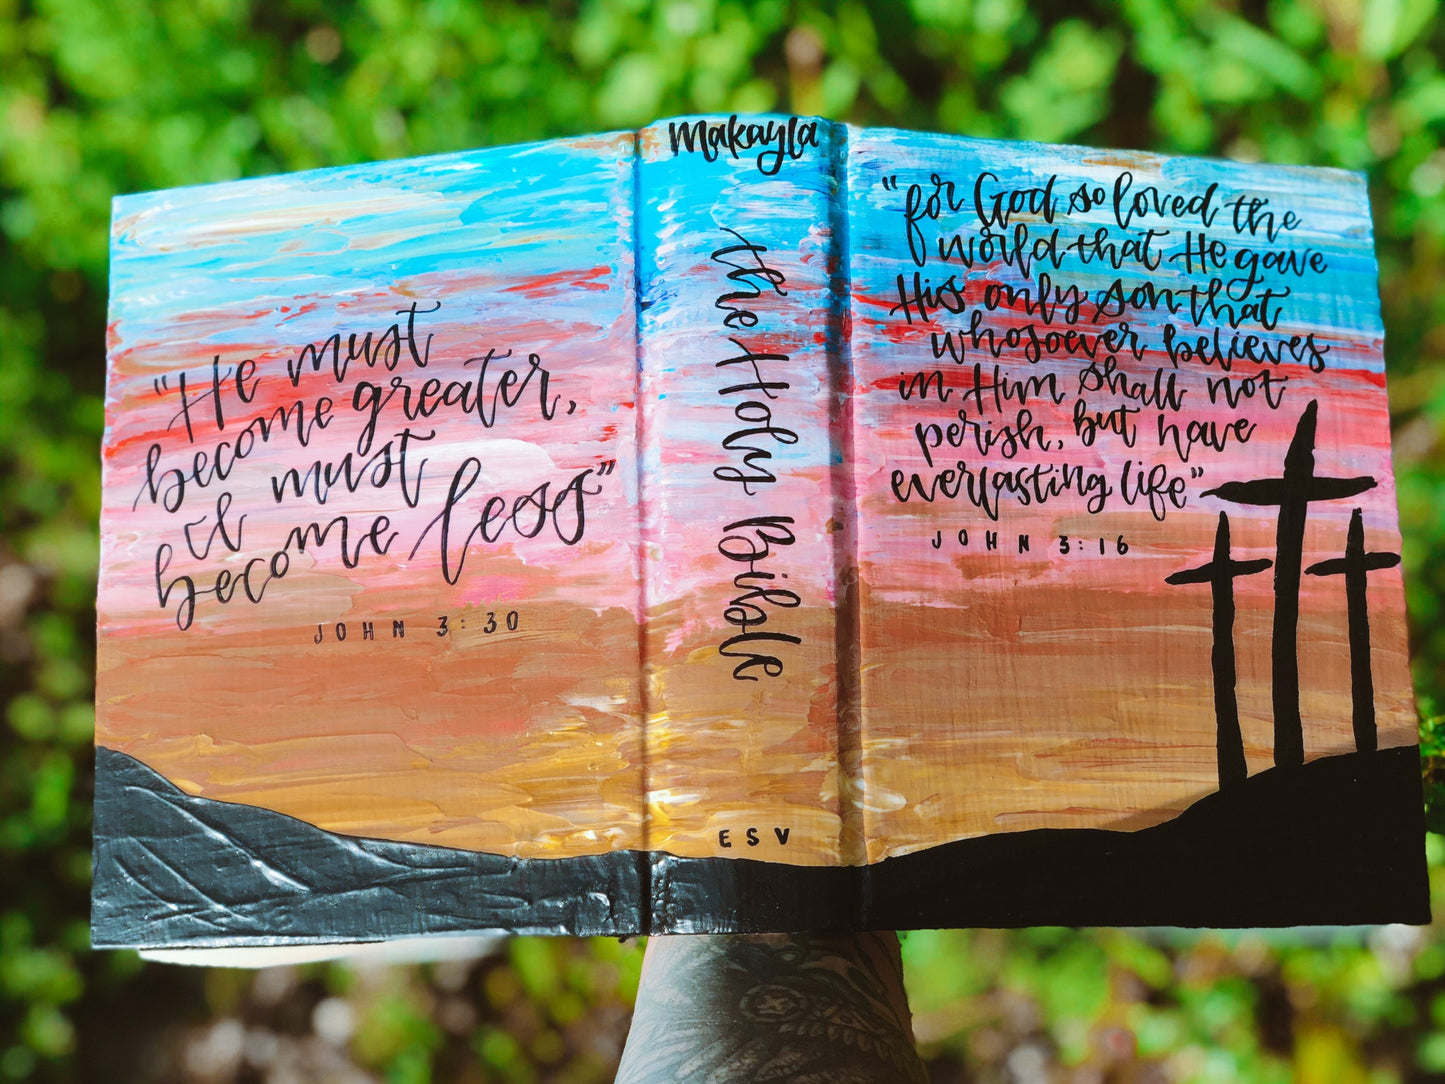 "He must
become greater,
I must
become less"
JOHN 3:30
Makayla
the Holy Bible
ESV
"for God so loved the
world that He gave
His only son that
whosoever believes
in Him shall not
perish, but have
everlasting life"
JOHN 3:16